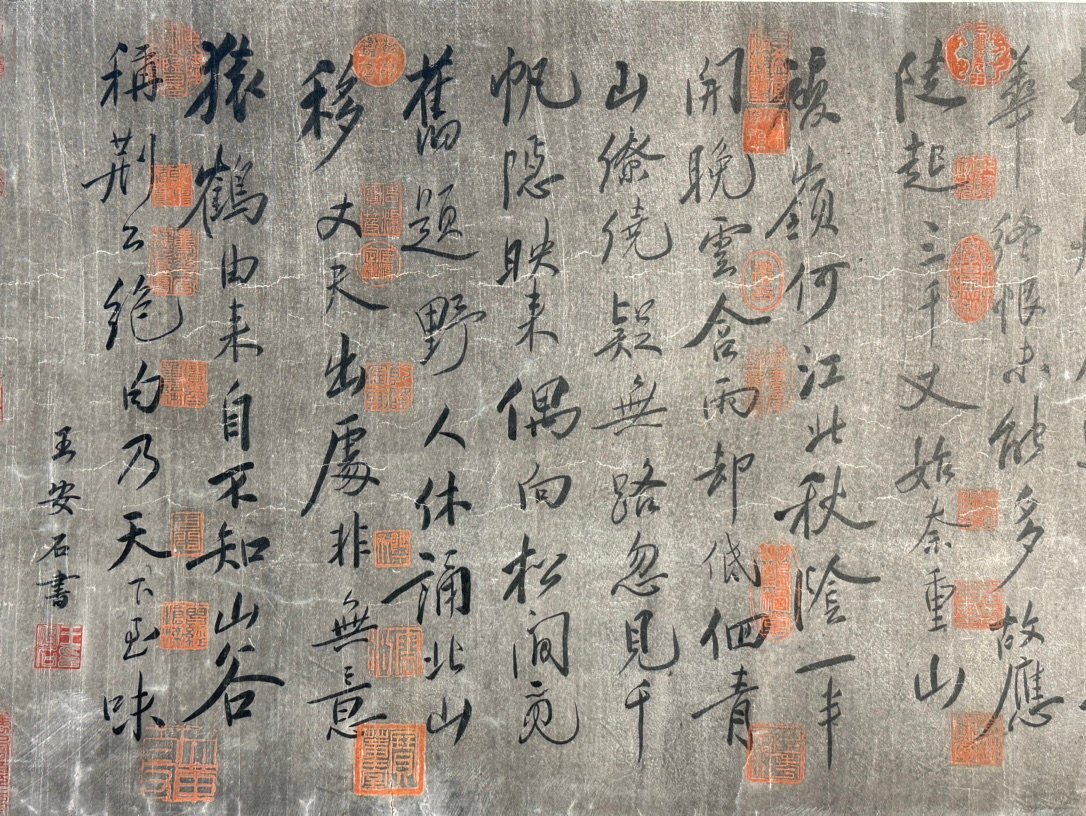 華終恨未能多故應
陡起三千丈始奈重山
複嶺何江北秋陰一半
開晚雲含雨却低佪青
山繚繞疑無路忽見千
帆隱映来偶向松間覓
舊題野人休誦北山
移丈夫出處非無意
猿鶴由来自不知山谷
稱荆公絶句乃天下至味
王安石書